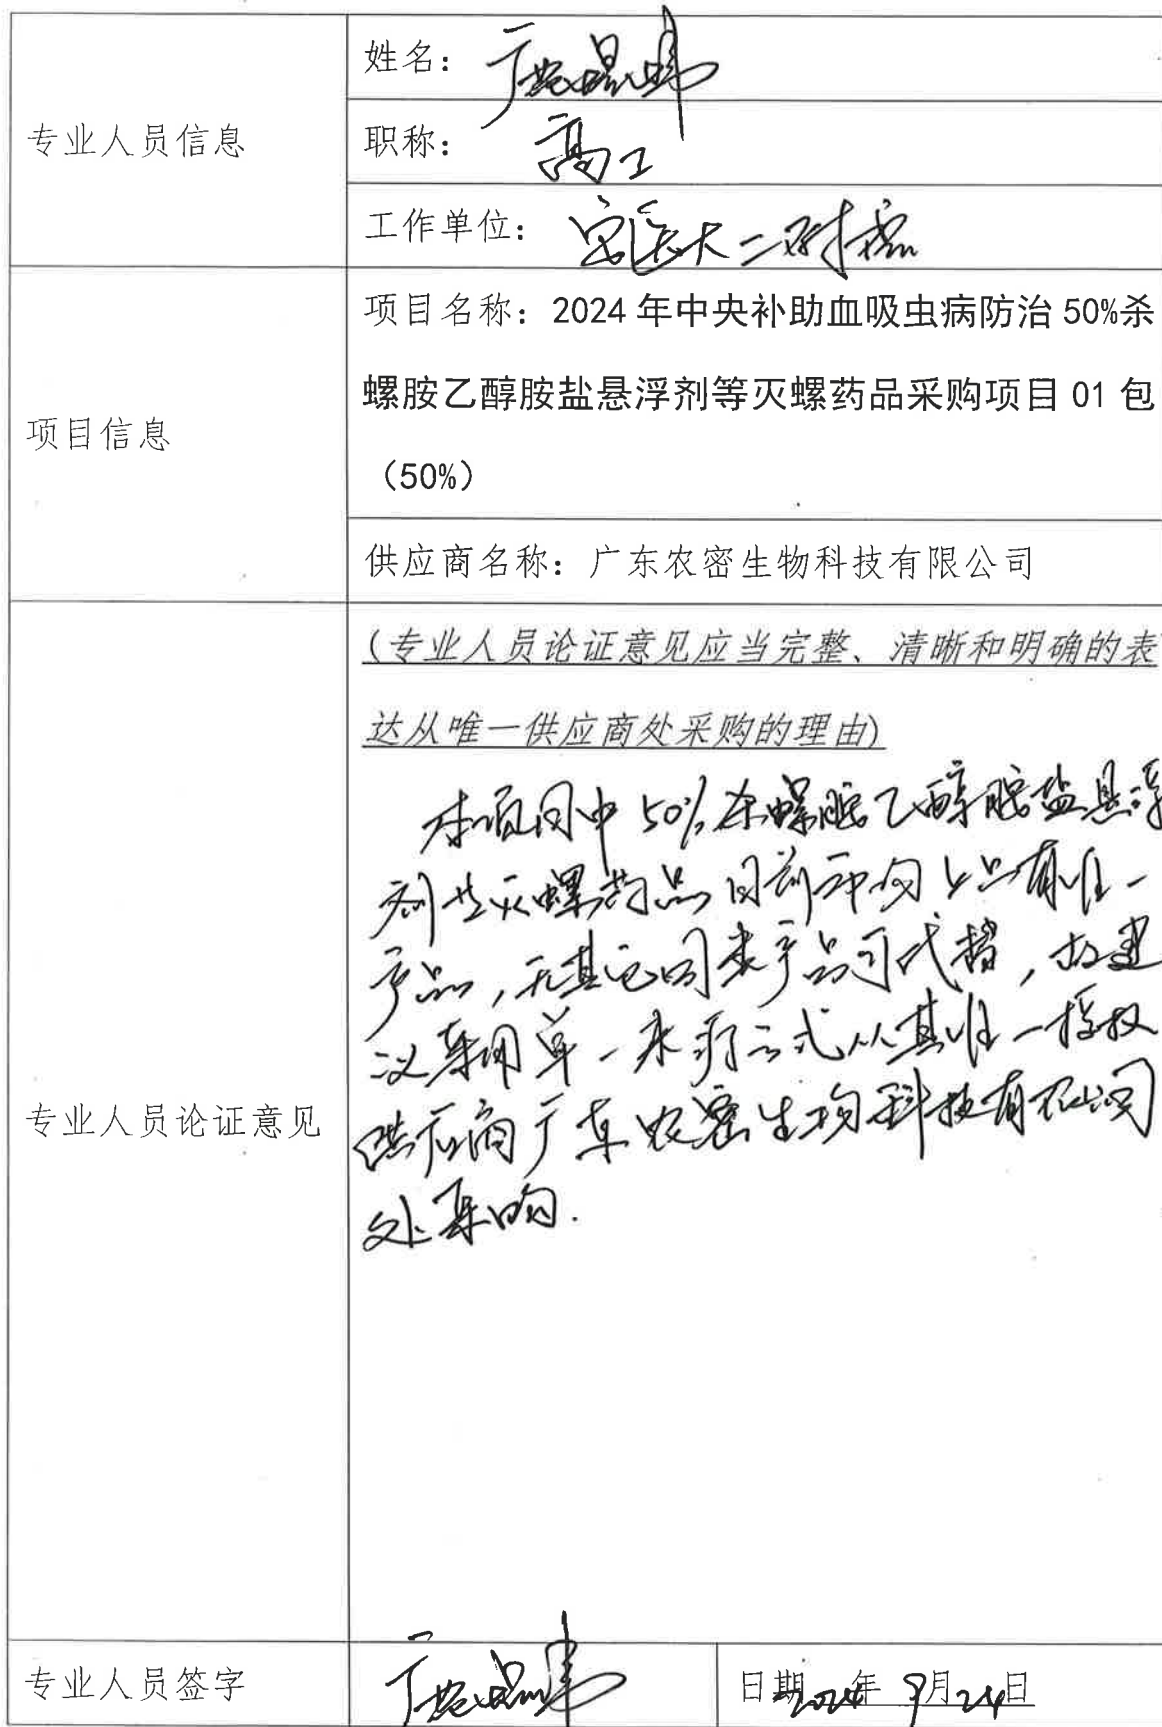 专业人员信息
姓名：
职称：高工
工作单位：安医大二附院
项目信息
项目名称：2024年中央补助血吸虫病防治50%杀
螺胺乙醇胺盐悬浮剂等灭螺药品采购项目01包
（50%）
供应商名称：广东农密生物科技有限公司
专业人员论证意见
(专业人员论证意见应当完整、清晰和明确的表
达从唯一供应商处采购的理由)
本项目中50%杀螺胺乙醇胺盐悬浮
剂等灭螺药品目前市场上只有唯一
产品，无其它同类产品可代替，故建
议采用单一来源方式从其唯一授权
供应商广东农密生物科技有限公司
处采购.
专业人员签字
日期2024年9月24日